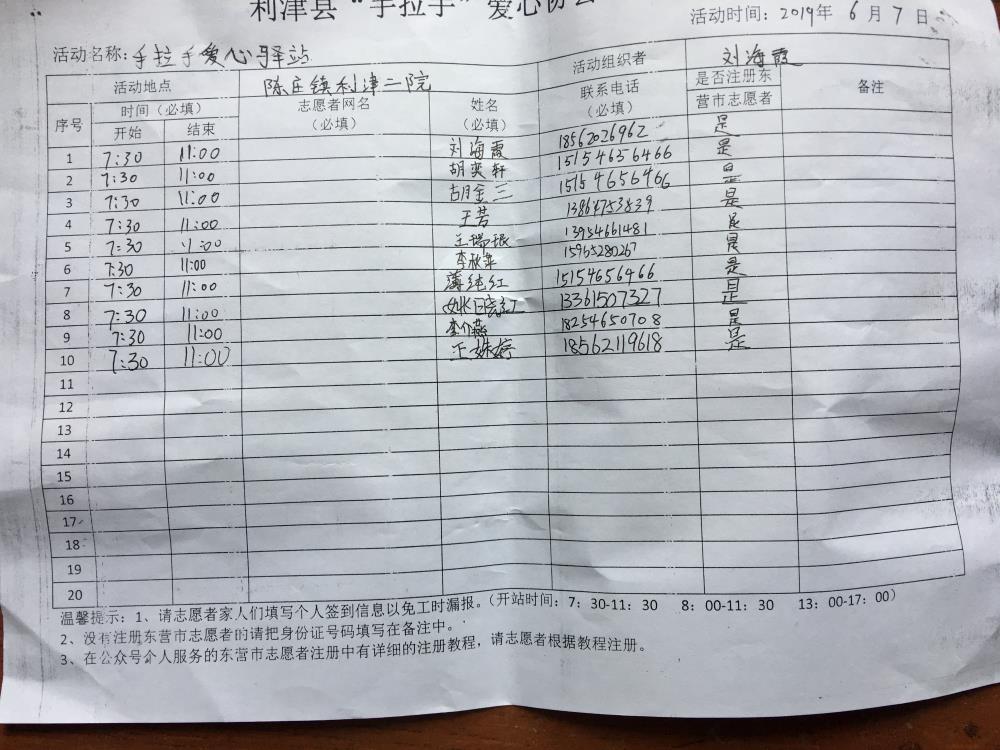 利津县“手拉手”爱心协会
活动时间：2019年 6月7日
活动名称：手拉手爱心驿站
活动地点 陈庄镇利津二院 活动组织者 刘海霞
序号 时间（必填） 志愿者网名（必填） 姓名（必填） 联系电话（必填） 是否注册东营市志愿者 备注
开始 结束
1 7:30 11:00 刘海霞 18562026962 是
2 7:30 11:00 胡奕轩 15154656466 是
3 7:30 11:00 胡金三 15154656466 是
4 7:30 11:00 王芳 13864753839 是
5 7:30 11:00 王瑞珉 13954661481 是
6 7:30 11:00 李秋萍 15965280267 是
7 7:30 11:00 薄纯红 15154656466 是
8 7:30 11:00 13361507327 是
9 7:30 11:00 李介燕 18254650708 是
10 7:30 11:00 王姝婷 18562119618 是
11
12
13
14
15
16
17
18
19
20
温馨提示：1、请志愿者家人们填写个人签到信息以免工时漏报。（开站时间：7：30-11：30 8：00-11：30 13：00-17：00）
2、没有注册东营市志愿者的请把身份证号码填写在备注中。
3、在公众号个人服务的东营市志愿者注册中有详细的注册教程，请志愿者根据教程注册。